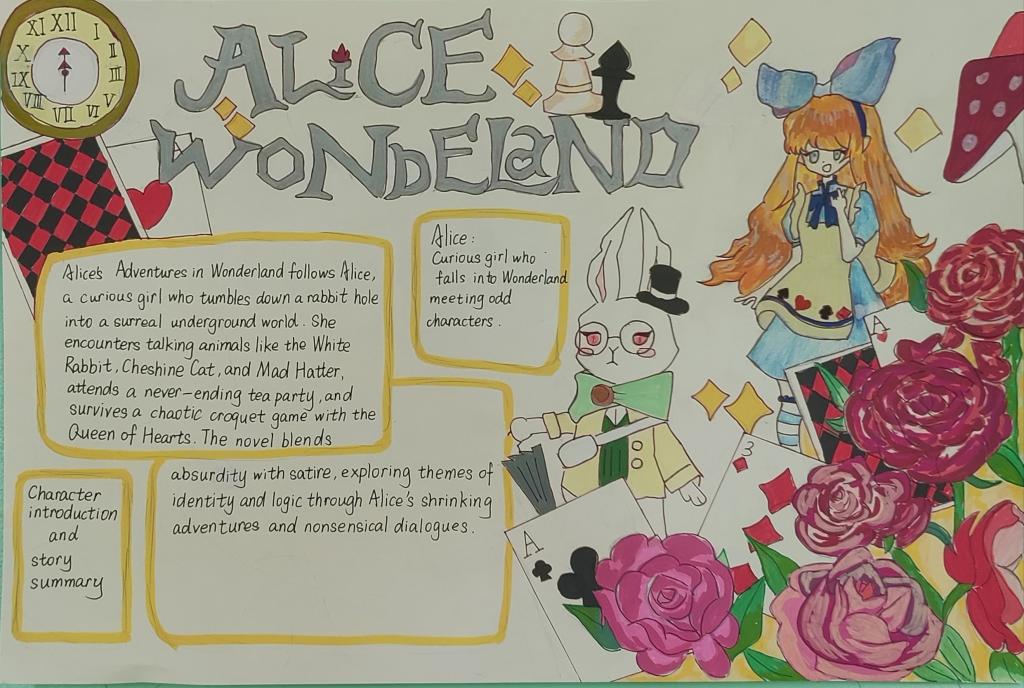 XI XII I
X II
IX III
VIII V
VII VI
ALiCE
WONDELaND
Alice's Adventures in Wonderland follows Alice,
a curious girl who tumbles down a rabbit hole
into a surreal underground world. She
encounters talking animals like the White
Rabbit, Cheshine Cat, and Mad Hatter,
attends a never-ending tea party, and
survives a chaotic croquet game with the
Queen of Hearts. The novel blends
absurdity with satire, exploring themes of
identity and logic through Alice's shrinking
adventures and nonsensical dialogues.
Alice:
Curious girl who
falls into Wonderland
meeting odd
characters.
Character
introduction
and
story
summary
A
3
A